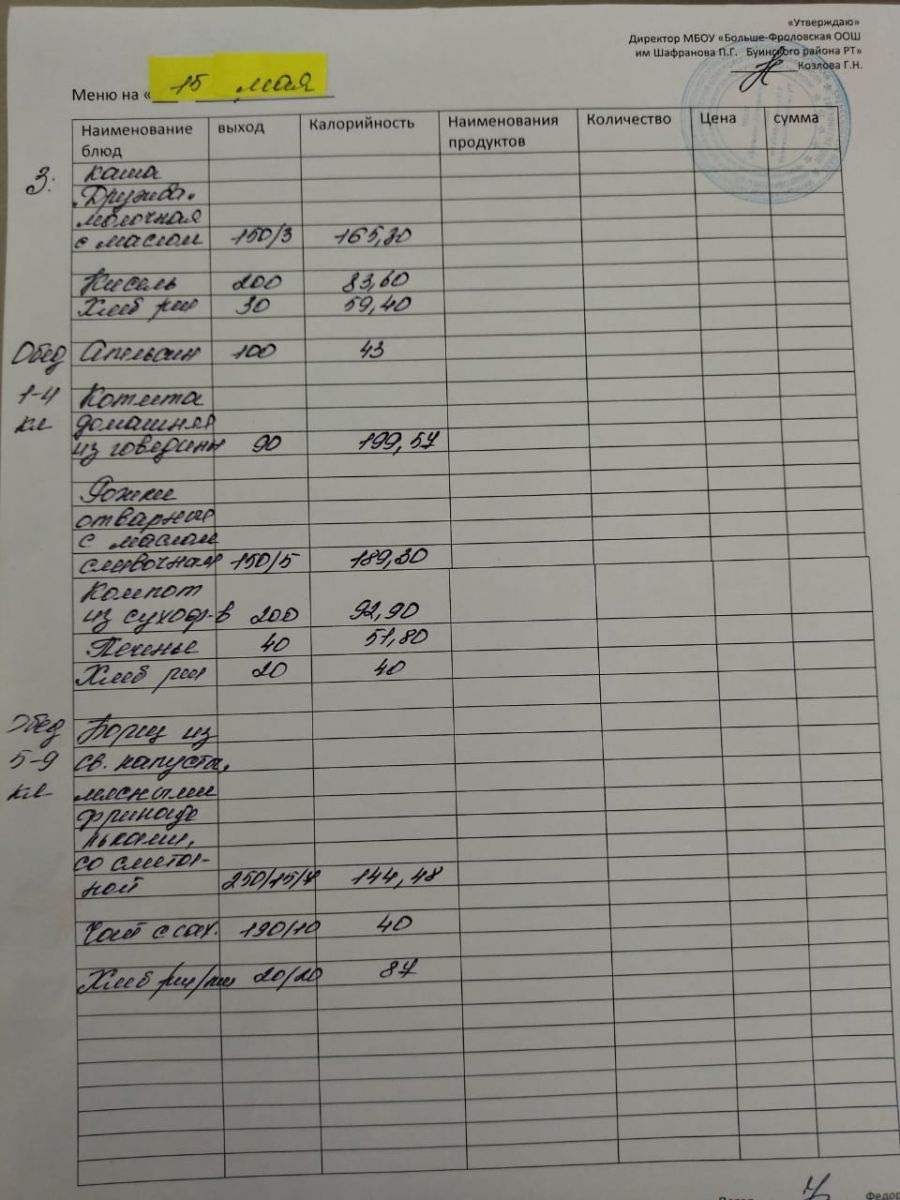 «Утверждаю»
Директор МБОУ «Больше-Фроловская ООШ
им Шафранова П.Г. Буинского района РТ»
Козлова Г.Н.
Меню на « 15 мая
Наименование блюд выход Калорийность Наименования продуктов Количество Цена сумма
З: каша
"Дружба"
молочная
с маслом 150/3 165,30
Кисель 200 83,60
Хлеб рж 30 59,40
Обед Апельсин 100 43
1-4 Котлета
кл домашняя
из говядины 90 199,57
Рожки
отварные
с маслом
сливочным 150/5 189,30
Компот
из сухофр-в 200 92,90
Печенье 40 51,80
Хлеб рж 20 40
Обед Борщ из
5-9 св. капусты,
кл мясными
фрикаде
льками,
со смета-
ной 250/15/7 144,48
Чай с сах. 190/10 40
Хлеб рж/пш 20/20 87
Повар Федор